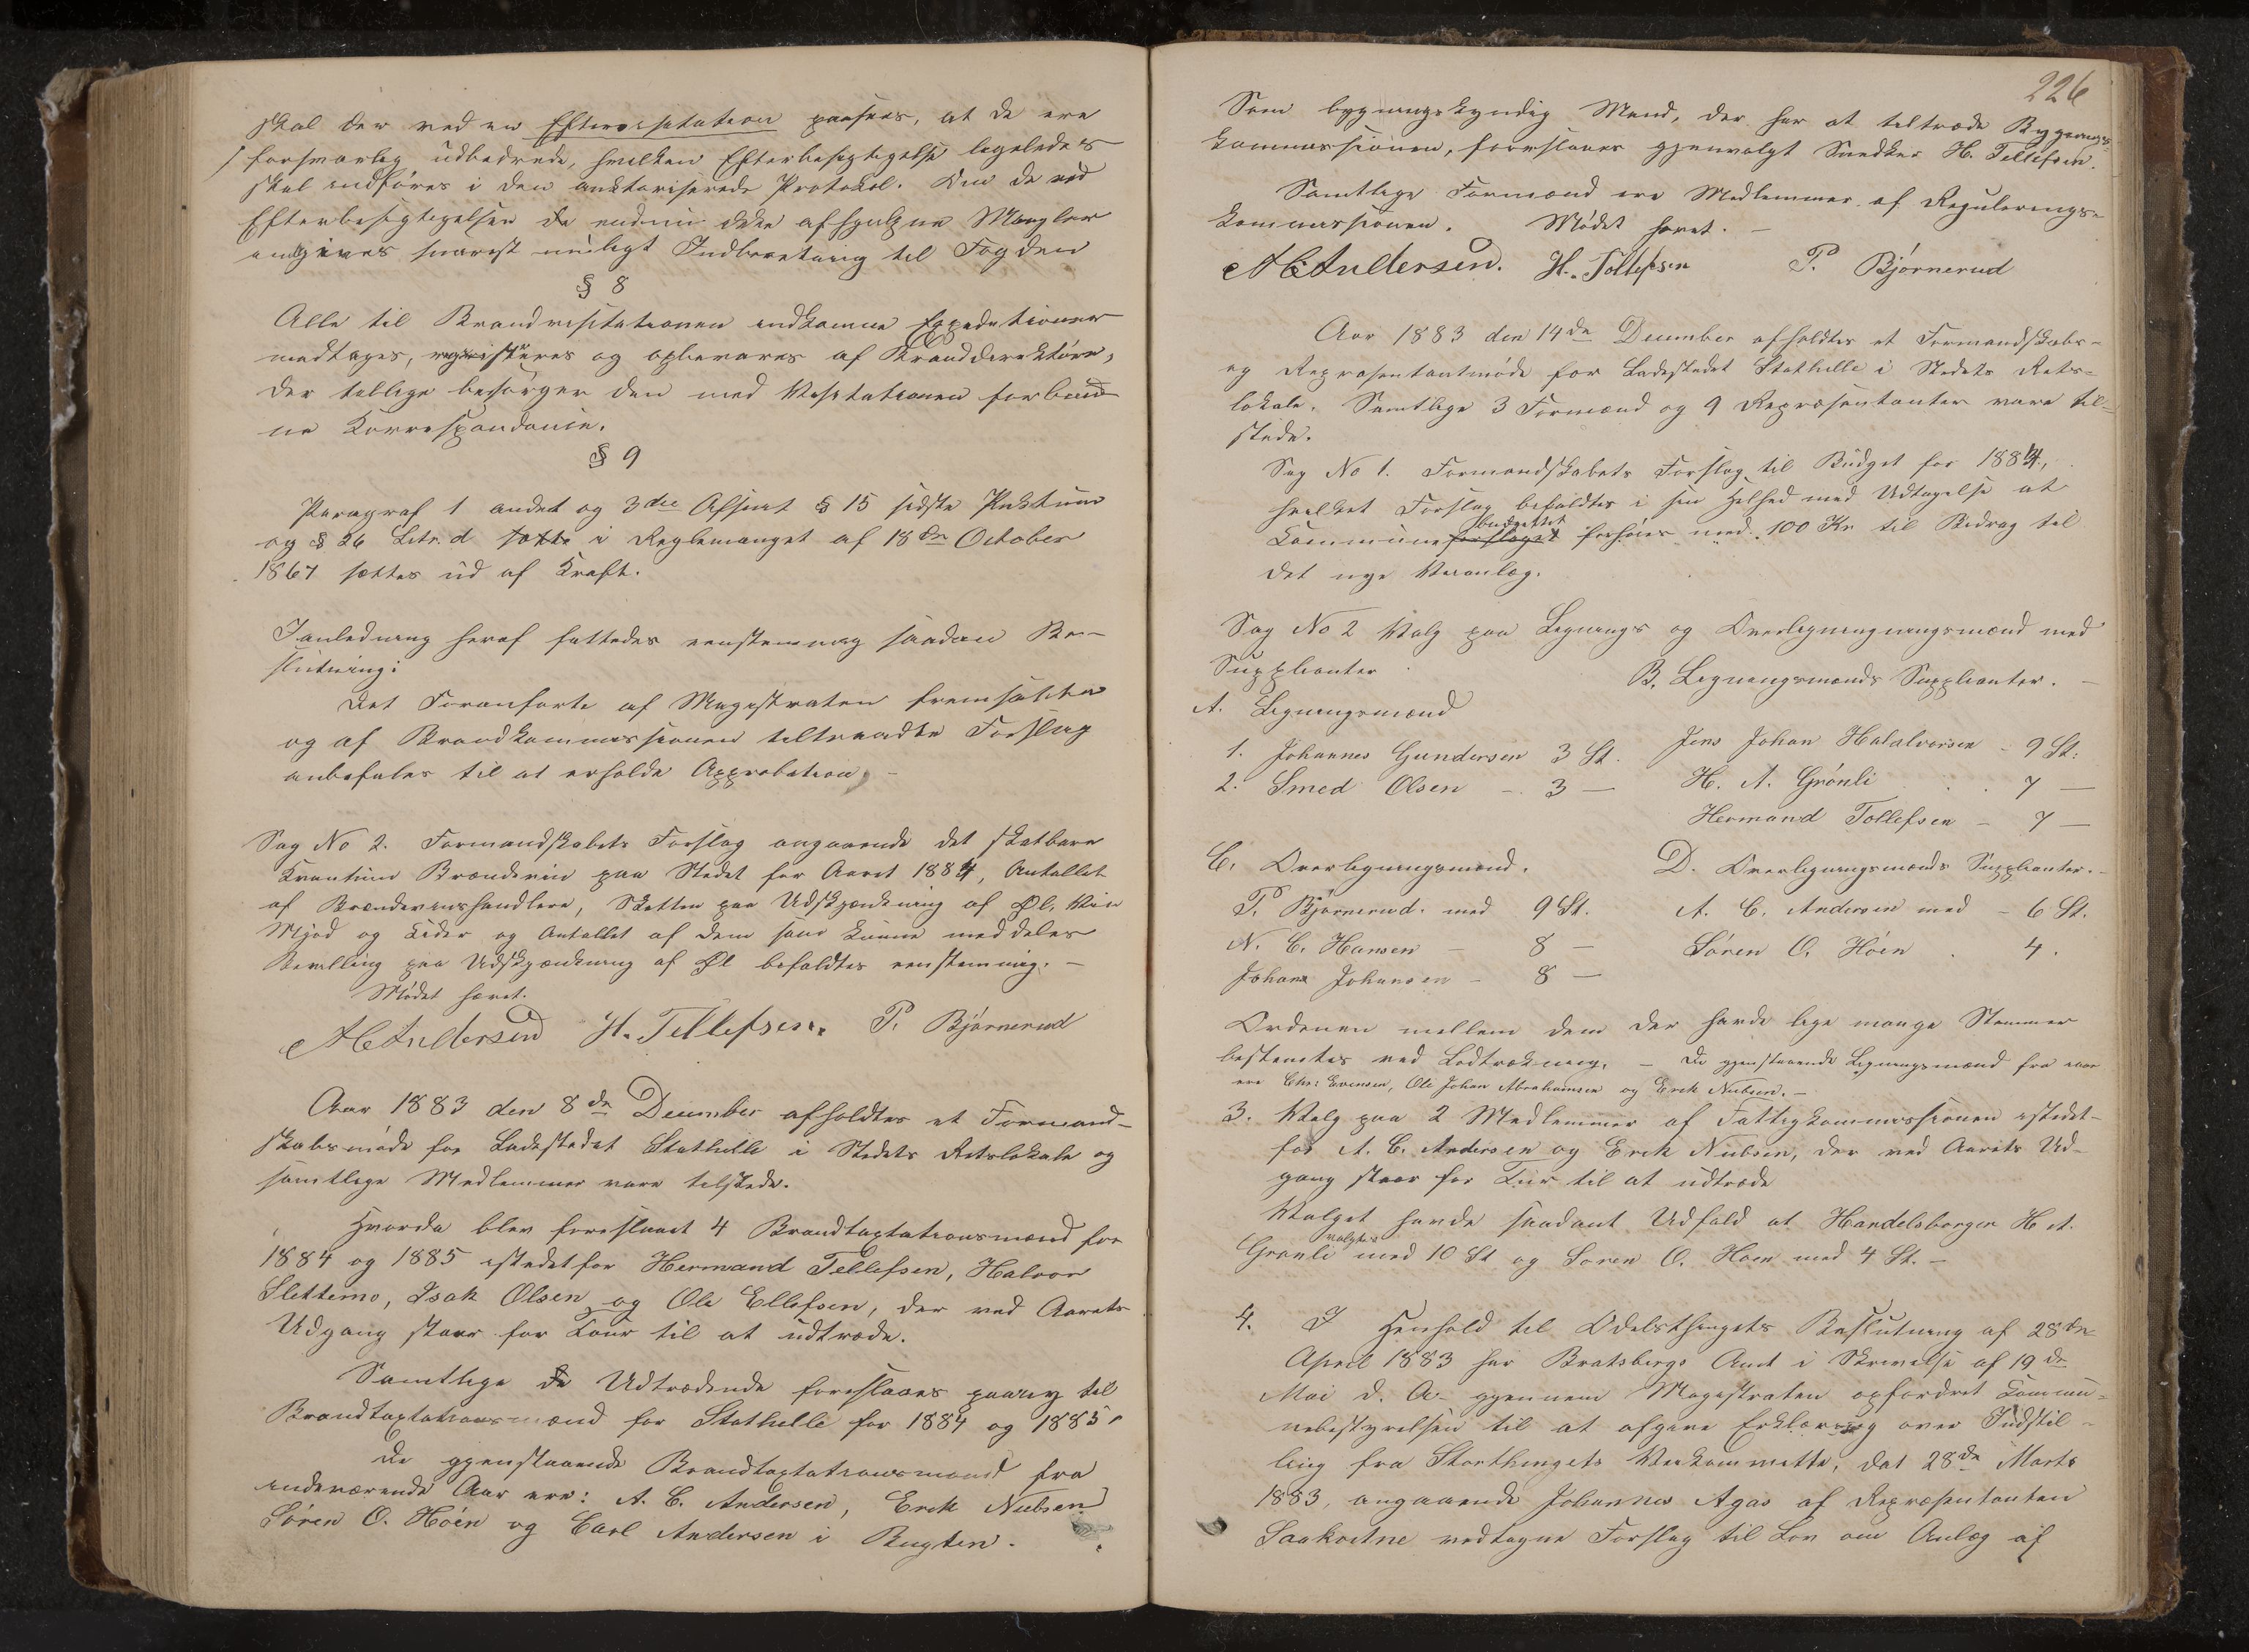 skal der ved en Eftervisitation paasees, at de ere
forsvarlig udbedrede, hvilken Efterbesigtigelse ligeledes
skal indføres i den auktoriserede Protokol. Om de ved
Efterbesigtigelsen da endnu ikke afhjulpne Mangler
indgives snarest muligt Indberetning til Fogden
§ 8
Alle til Brandvisitationen indkomne Expeditioner
modtages, registreres og opbevares af Branddirektøren,
der tillige besørger den med Visitationen forbund-
ne Korrespondance.
§ 9
Paragraf 1 andet og 3die Afsnit § 15 sidste Punktum
og § 26 Litr. d i Reglementet af 18de October
1867 sættes ud af Kraft.
I anledning heraf fattedes eenstemmig saadan Be-
slutning:
Det Foranførte af Magistraten fremsatte
og af Brandkommissionen tiltraadte Forslag
anbefales til at erholde Approbation. -
Sag No 2. Formandskabets Forslag angaaende det skatbare
Kvantum Brændeviin paa Stedet for Aaret 1884, Antallet
af Brændeviinshandlere, Skatten paa Udskjænkning af Øl, Viin
Mjød og Cider og Antallet af dem som kunne meddeles
Bevilling paa Udskjænkning af Øl befaldtes eenstemmig. -
Mødet hævet.
A C Andersen H. Tellefsen. P. Bjørnerud
Aar 1883 den 8de December afholdtes et Formand-
skabsmøde for Ladestedet Stathelle i Stedets Retslokale og
samtlige Medlemmer vare tilstede.
Hvorda blev foreslaaet 4 Brandtaxtationsmænd for
1884 og 1885 istedetfor Hermand Tellefsen, Halvor
Slettemo, Isak Olsen og Ole Ellefsen, der ved Aarets
Udgang staar for Tour til at udtræde.
Samtlige de Udtrædende foreslaaes paany til
Brandtaxtationsmænd for Stathelle for 1884 og 1885.
De gjenstaaende Brandtaxtationsmænd fra
indeværende Aar ere: A. C. Andersen, Erik Nielsen
Søren O. Høen og Carl Andersen i Bugten.
226
Som bygningskyndig Mand, der har at tiltræde Bygnings-
kommissionen, foreslaaes gjenvalgt Snedker H. Tellefsen.
Samtlige Formænd ere Medlemmer af Regulerings-
kommissionen. Mødet hævet. -
A C Andersen. H. Tollefsen P. Bjørnerud
Aar 1883 den 14de December afholdtes et Formandskabs-
og Repræsentantmøde for Ladestedet Stathelle i Stedets Rets-
lokale. Samtlige 3 Formænd og 9 Repræsentanter vare til-
stede.
Sag No 1. Formandskabets Forslag til Budget for 1884,
hvilket Forslag befaldtes i sin Helhed med Udtagelse at
Kommunebudgettet forhøies med 100 Kr til Bidrag til
det nye Veianlæg.
Sag No 2 Valg paa Lignings og Overligningningsmænd med
Supplianter
A. Ligningsmænd
B. Ligningsmænds Supplianter. -
1. Johannes Gundersen 3 St. Jens Johan Halalvorsen - 9 St:
2. Smed Olsen - 3 - H. A. Grønli . . 7 -
Hermand Tollefsen - 7 -
C. Overligningsmænd. D. Overligningsmænds Supplianter. -
P. Bjørnerud. med 9 St. A. C. Andersen med - 6 St.
N. C. Hansen - 8 - Søren O. Høen . 4.
Johan Johansen - 8 -
Ordenen mellem dem der havde lige mange Stemmer
bestemtes ved Lodtrækning. - De gjenstaaende Ligningsmænd fra iaar
ere Chr: Evensen, Ole Johan Abrahamsen og Erik Nielsen. -
3. Valg paa 2 Medlemmer af Fattigkommissionen istedet-
for A. C. Andersen og Erik Nielsen, der ved Aarets Ud-
gang staar for Tur til at udtræde
Valget havde saadant Udfald at Handelsborger H A.
Grønli valgtes med 10 St og Søren O. Høen med 4 St. -
4. I Henhold til Odelsthingets Beslutning af 28de
April 1883 har Bratsbergs Amt i Skrivelse af 19de
Mai d. A. gjennem Magistraten opfordret Kommu-
nebestyrelsen til at afgive Erklæring over Indstil-
ling fra Storthingets Veikommitte, dat 28de Marts
1883, angaaende Johannes Agas af Repræsentanten
Saakvitne vedtagne Forslag til Lov om Anlæg af